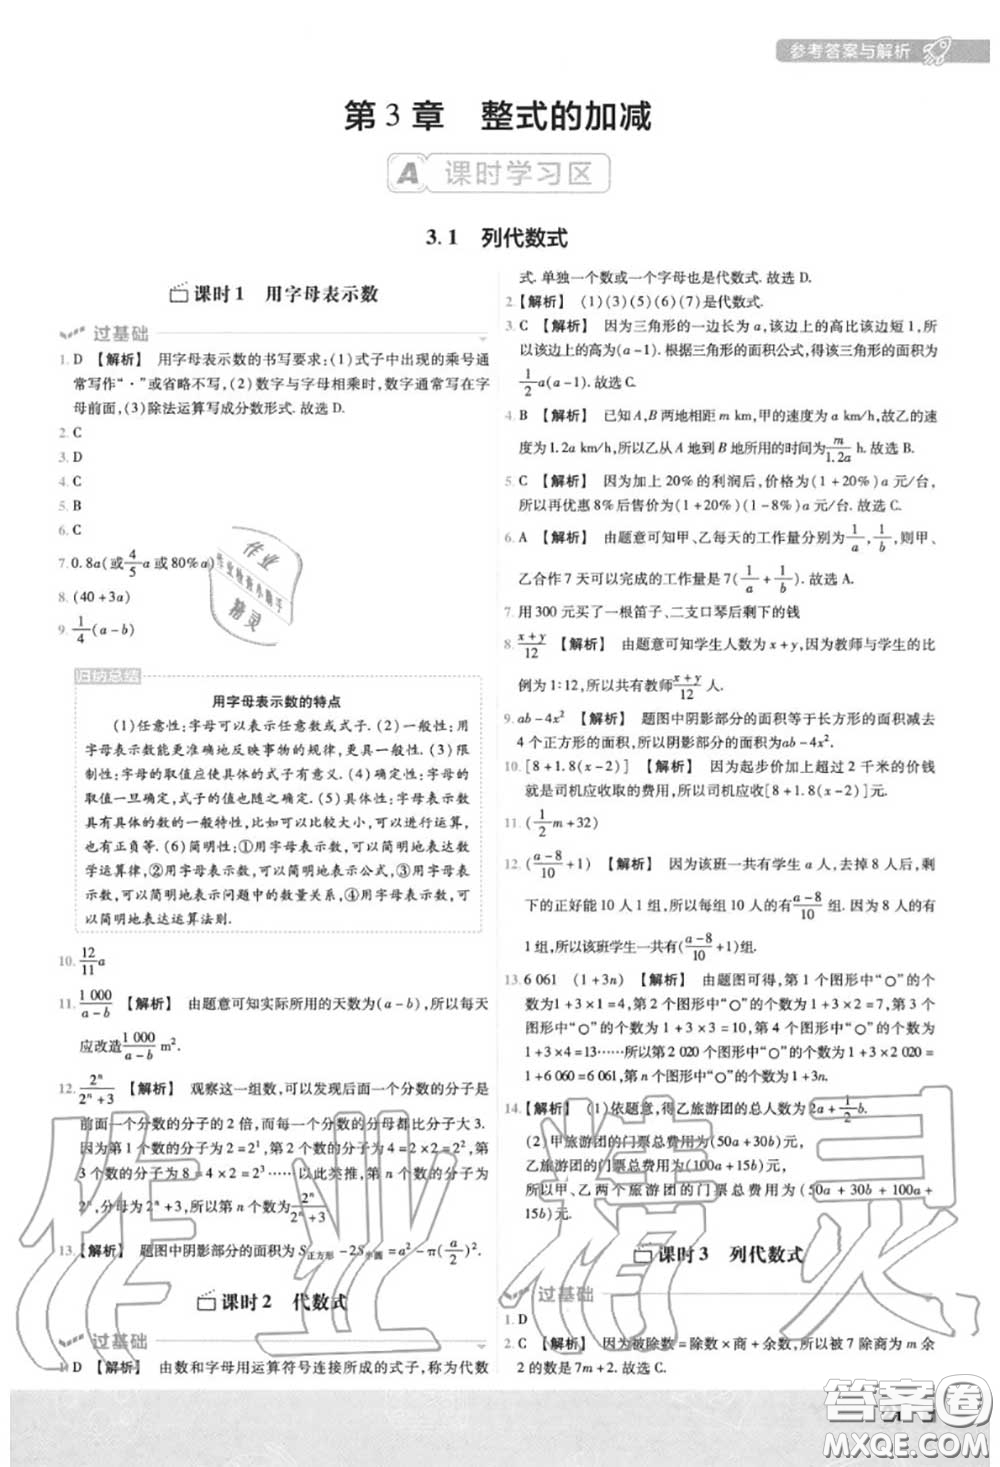 参考答案与解析
第 3 章　整式的加减
A 课时学习区
3.1　列代数式
课时 1　用字母表示数
过基础
1. D 【解析】 用字母表示数的书写要求:(1)式子中出现的乘号通
常写作“·”或省略不写,(2)数字与字母相乘时,数字通常写在字
母前面,(3)除法运算写成分数形式.故选 D.
2. C
3. D
4. C
5. B
6. C
7. 0.8a(或4/5 a 或 80% a)
8. (40+3a)
9. 1/4(a-b)
归纳总结
用字母表示数的特点
(1)任意性:字母可以表示任意数或式子.(2)一般性:用
字母表示数能更准确地反映事物的规律,更具一般性.(3)限
制性:字母的取值应使具体的式子有意义.(4)确定性:字母的
取值一旦确定,式子的值也随之确定.(5)具体性:字母表示数
具有具体的数的一般特性,比如可以比较大小,可以进行运算,
也有正負等.(6)简明性:①用字母表示数,可以简明地表达数
学运算律,②用字母表示数,可以简明地表示公式,③用字母表
示数,可以简明地表示问题中的数量关系,④用字母表示数,可
以简明地表达运算法则.
10. 12/11 a
11. 1 000/(a-b) 【解析】 由题意可知实际所用的天数为(a-b),所以每天
应改造 1 000/(a-b) m².
12. 2ⁿ/(2ⁿ+3) 【解析】 观察这一组数,可以发现后面一个分数的分子是
前面一个分数的分子的 2 倍,而每一个分数的分母都比分子大 3.
因为第 1 个分数的分子为 2=2¹,第 2 个分数的分子为 4=2×2=2²,第
3 个分数的分子为 8=4×2=2³……以此类推,第 n 个分数的分子为
2ⁿ,分母为 2ⁿ+3,所以第 n 个分数为 2ⁿ/(2ⁿ+3).
13. 【解析】 题图中阴影部分的面积为 S正方形-2S半圆=a²-π(a/2)².
课时 2　代数式
过基础
1. D 【解析】 由数和字母用运算符号连接所成的式子,称为代数
式.单独一个数或一个字母也是代数式.故选 D.
2. 【解析】 (1)(3)(5)(6)(7)是代数式.
3. C 【解析】 因为三角形的一边长为 a,该边上的高比该边短 1,所
以该边上的高为(a-1).根据三角形的面积公式,得该三角形的面积为
1/2 a(a-1).故选 C.
4. B 【解析】 已知 A,B 两地相距 m km,甲的速度为 a km/h,故乙的速
度为 1.2a km/h,所以乙从 A 地到 B 地所用的时间为 m/1.2a h.故选 B.
5. C 【解析】 因为加上 20%的利润后,价格为(1+20%)a 元/台,
所以再优惠 8%后售价为(1+20%)(1-8%)a 元/台.故选 C.
6. A 【解析】 由题意可知甲、乙每天的工作量分别为 1/a,1/b,则甲、
乙合作 7 天可以完成的工作量是 7(1/a+1/b).
7. 用 300 元买了一根笛子、二支口琴后剩下的钱
8. (x+y)/12 【解析】 由题意可知学生人数为 x+y,因为教师与学生的比
例为 1:12,所以共有教师 (x+y)/12 人.
9. ab-4x² 【解析】 题图中阴影部分的面积等于长方形的面积减去
4 个正方形的面积,所以阴影部分的面积为 ab-4x².
10. [8+1.8(x-2)] 【解析】 因为起步价加上超过 2 千米的价钱
就是司机应收取的费用,所以司机应收[8+1.8(x-2)]元.
11. (1/2 m+32)
12. ((a-8)/10+1) 【解析】 因为该班一共有学生 a 人,去掉 8 人后,剩
下的正好能 10 人 1 组,所以每组 10 人的有 (a-8)/10 组.因为还有
1 组,所以该班学生一共有((a-8)/10+1)组.
13. 6 061 (1+3n) 【解析】 由题图可得,第 1 个图形中“○”的个
数为 1+3×1=4,第 2 个图形中“○”的个数为 1+3×2=7,第 3 个
图形中“○”的个数为 1+3×3=10,第 4 个图形中“○”的个数为
1+3×4=13……所以第 2 020 个图形中“○”的个数为 1+3×2 020=
1+6 060=6 061,第 n 个图形中“○”的个数为 1+3n.
14. 【解析】 (1)依题意,得乙旅游团的总人数为 2a+1/2 b.
(2)甲旅游团的门票总费用为(50a+30b)元,
乙旅游团的门票总费用为(100a+15b)元,
所以甲、乙两个旅游团的门票总费用为(50a+30b+100a+
15b)元.
课时 3　列代数式
过基础
1. D
2. C 【解析】 因为被除数=除数×商+余数,所以被 7 除商为 m 余
2 的数是 7m+2.故选 C.
作业精灵
作业
作业检查小助手
精灵
答案圈
MXQE.COM